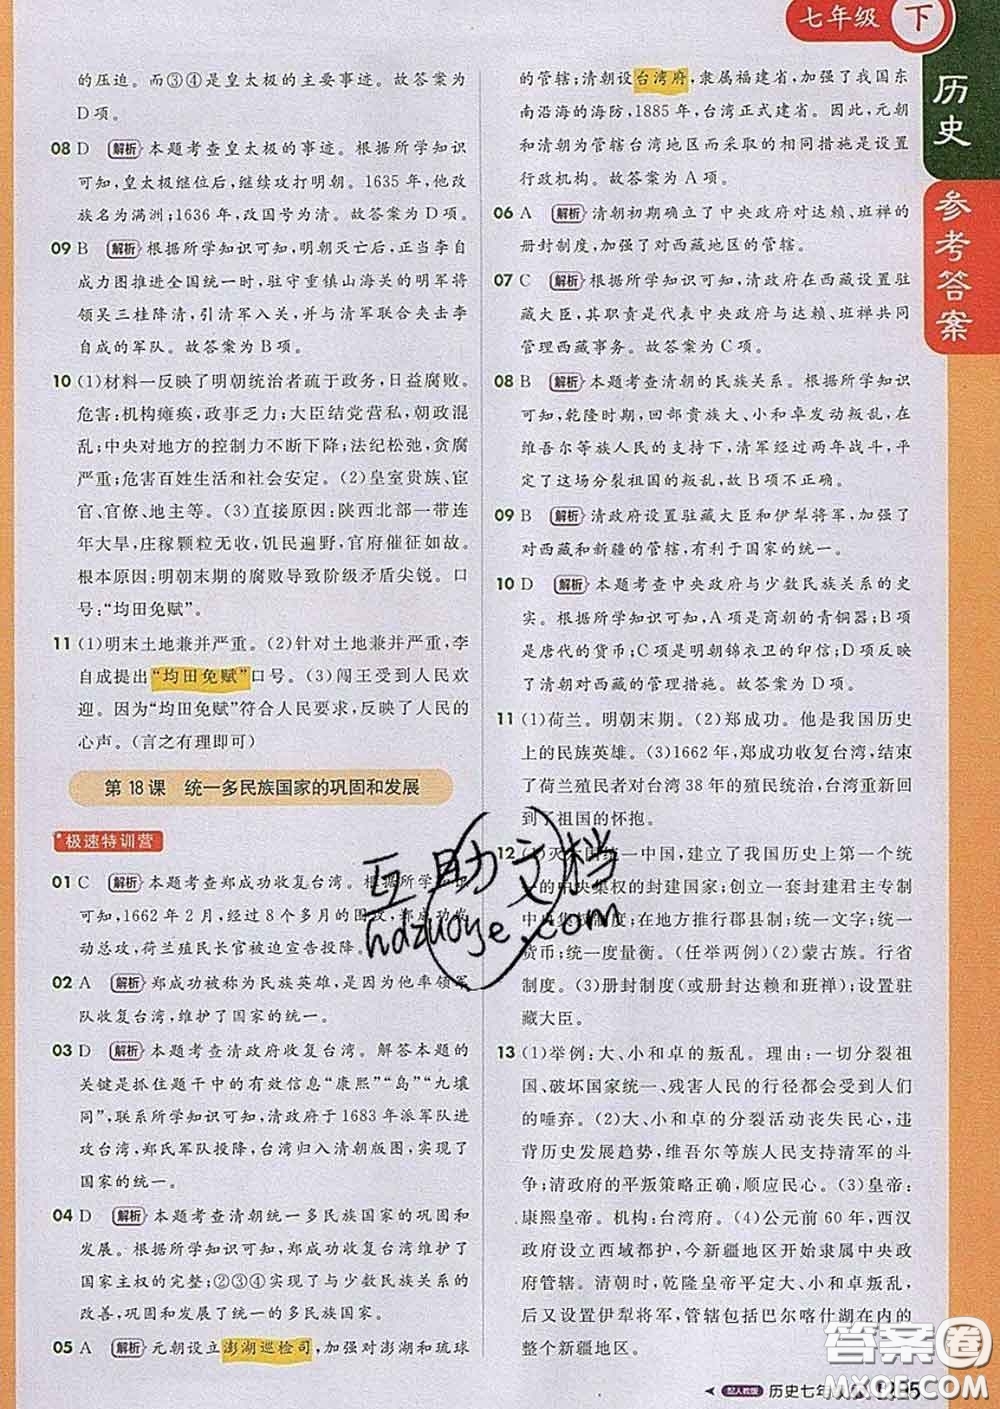 七年级 下
历史
参考答案
的压迫。而③④是皇太极的主要事迹。故答案为
D项。
08 D 解析 本题考查皇太极的事迹。根据所学知识
可知,皇太极继位后,继续攻打明朝。1635年,他改
族名为满洲;1636年,改国号为清。故答案为D项。
09 B 解析 根据所学知识可知,明朝灭亡后,正当李自
成力图推进全国统一时,驻守重镇山海关的明军将
领吴三桂降清,引清军入关,并与清军联合夹击李
自成的军队。故答案为B项。
10 (1)材料一反映了明朝统治者疏于政务,日益腐败。
危害:机构瘫痪,政事乏力;大臣结党营私,朝政混
乱;中央对地方的控制力不断下降;法纪松弛,贪腐
严重;危害百姓生活和社会安定。(2)皇室贵族、宦
官、官僚、地主等。(3)直接原因:陕西北部一带连
年大旱,庄稼颗粒无收,饥民遍野,官府催征如故。
根本原因:明朝末期的腐败导致阶级矛盾尖锐。口
号:“均田免赋”。
11 (1)明末土地兼并严重。(2)针对土地兼并严重,李
自成提出“均田免赋”口号。(3)闯王受到人民欢
迎。因为“均田免赋”符合人民要求,反映了人民的
心声。(言之有理即可)
第18课 统一多民族国家的巩固和发展
极速特训营
01 C 解析 本题考查郑成功收复台湾。根据所学知识
可知,1662年2月,经过8个多月的围攻,郑成功发
动总攻,荷兰殖民长官被迫宣告投降。
02 A 解析 郑成功被称为民族英雄,是因为他率领军
队收复台湾,维护了国家的统一。
03 D 解析 本题考查清政府收复台湾。解答本题的
关键是抓住题干中的有效信息“康熙”“岛”“九壤
同”,联系所学知识可知,清政府于1683年派军队进
攻台湾,郑氏军队投降,台湾归入清朝版图,实现了
国家的统一。
04 D 解析 本题考查清朝统一多民族国家的巩固和
发展。根据所学知识可知,郑成功收复台湾维护了
国家主权的完整;②③④实现了与少数民族关系的
改善,巩固和发展了统一的多民族国家。
05 A 解析 元朝设立澎湖巡检司,加强对澎湖和琉球
的管辖;清朝设台湾府,隶属福建省,加强了我国东
南沿海的海防,1885年,台湾正式建省。因此,元朝
和清朝为管辖台湾地区而采取的相同措施是设置
行政机构。故答案为A项。
06 A 解析 清朝初期确立了中央政府对达赖、班禅的
册封制度,加强了对西藏地区的管辖。
07 C 解析 根据所学知识可知,清政府在西藏设置驻
藏大臣,其职责是代表中央政府与达赖、班禅共同
管理西藏事务。故答案为C项。
08 B 解析 本题考查清朝的民族关系。根据所学知识
可知,乾隆时期,回部贵族大、小和卓发动叛乱,在
维吾尔等族人民的支持下,清军经过两年战斗,平
定了这场分裂祖国的叛乱,故B项符合题意。
09 B 解析 清政府设置驻藏大臣和伊犁将军,加强了对
西藏和新疆的管辖,有利于国家的统一。
10 D 解析 本题考查中央政府与少数民族关系的史
实。根据所学知识可知,A项是商朝的青铜器;B项
是唐代的货币;C项是明朝锦衣卫的印信;D项反映了
对西藏的管理措施。故答案为D项。
11 (1)荷兰。明朝末期。(2)郑成功。他是我国历史
上的民族英雄。(3)1662年,郑成功收复台湾,结束
了荷兰殖民者对台湾38年的殖民统治,台湾重新回
到了祖国的怀抱。
12 (1)灭六国统一中国,建立了我国历史上第一个统
一的中央集权的封建国家;创立一套封建君主专制
中央集权制度;在地方推行郡县制;统一文字;统一
货币;统一度量衡。(任举两例)(2)蒙古族。行省
制度。(3)册封制度(或册封达赖和班禅);设置驻
藏大臣。
13 (1)举例:大、小和卓的叛乱。理由:一切分裂祖
国、破坏国家统一、残害人民的行径都会受到人们
的唾弃。(2)大、小和卓的分裂活动丧失民心,违
背历史发展趋势,维吾尔等族人民支持清军的斗
争;清政府的平叛策略正确,顺应民心。(3)皇帝:
康熙皇帝。机构:台湾府。(4)公元前60年,西汉
政府设置西域都护,今新疆地区开始隶属中央政
府管辖。清朝时,乾隆皇帝平定大、小和卓叛乱,
后又设置伊犁将军,管辖包括巴尔喀什湖在内的
整个新疆地区。
互助文档
hdzuoye.com
答案圈
配人教版 历史七年